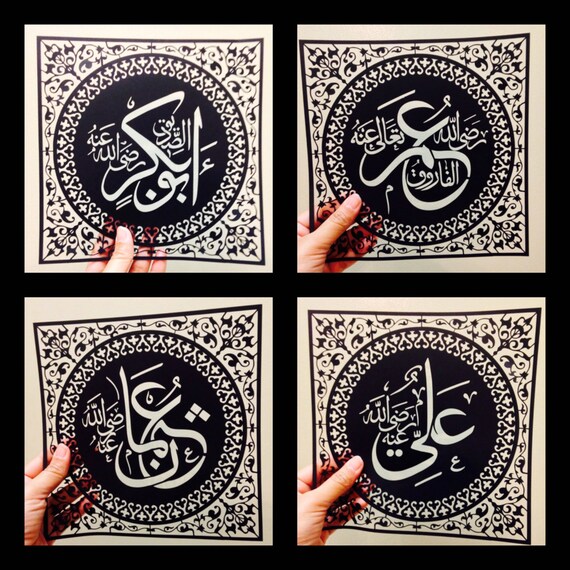 أبو بكر الصديق رضي الله عنه
عمر الفاروق رضي الله تعالى عنه
عثمان رضي الله عنه
علي رضي الله عنه